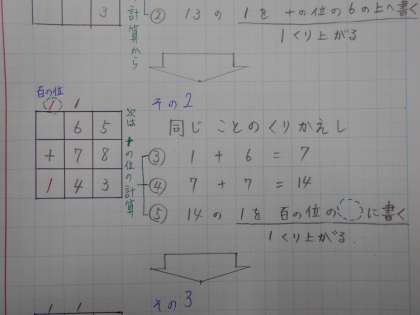 3
計算から
② 13の 1を 十の位の6の上へ書く
1くり上がる
百の位
1 1
6 5
+ 7 8
1 4 3
次は十の位の計算
その2
同じ ことの くりかえし
③ 1 + 6 = 7
④ 7 + 7 = 14
⑤ 14の 1を 百の位の に書く
1くり上がる
その3
1 1